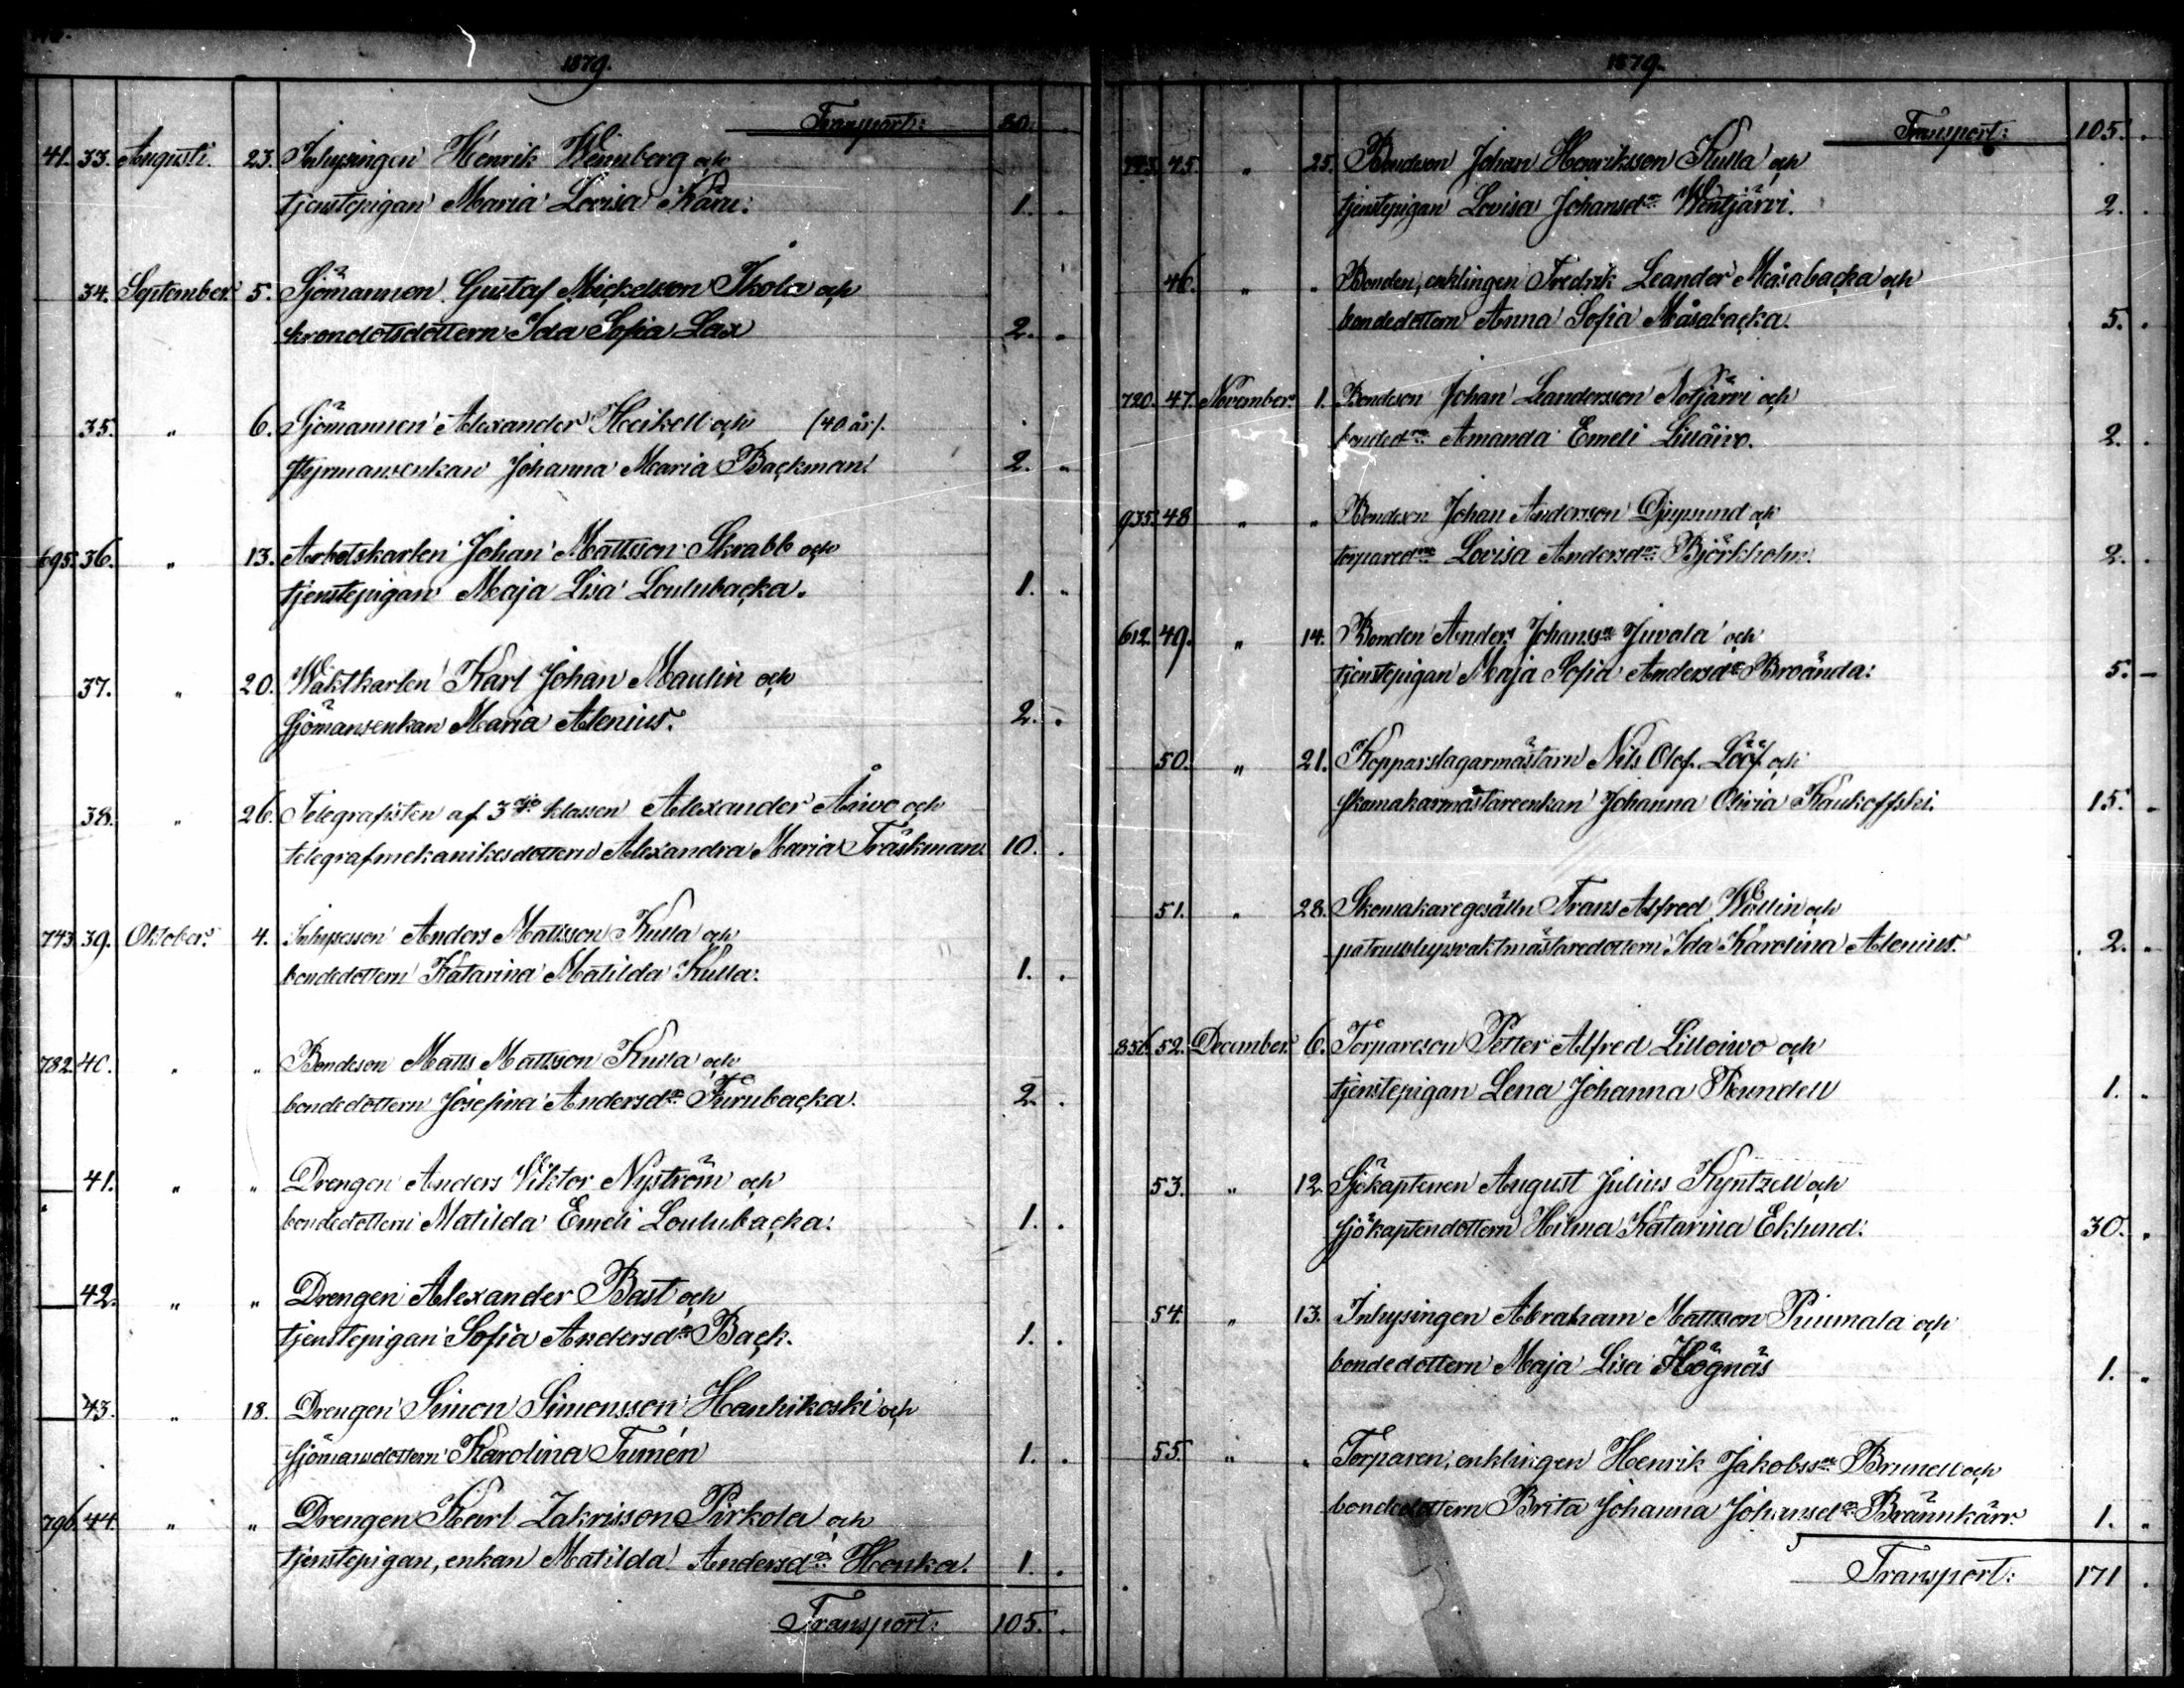 1879.
Transport: 80.
41. 33. Augusti. 23. Inhysingen Henrik Wennberg och
tjenstepigan Maria Lovisa Kåru: 1.
34. September 5. Sjömannen Gustaf Mickelsson Ikola och
Ida Sofia Lax 2.
35. " 6. Sjömannen Alexander Heikell och (40 år).
styrmansenkan Johanna Maria Backman. 2. "
695. 36. " 13. Arbetskarlen Johan Mattsson Skrabb och
tjenstepigan Maja Lisa Loulubacka. 1. "
37. " 20. Waktkarlen Karl Johan Maulin och
sjömansenkan Maria Alenius. 2.
38. " 26. Telegrafisten af 3dje klassen Alexander Åivo och
telegrafmekanikesdottern Alexandra Maria Träskman. 10.
743. 39. Oktober. 4. Inhyseson Anders Mattsson Kulla och
bondedottern Katarina Matilda Kulla. 1.
782. 40. " " Bondeson Matts Mattsson Kulla och
bondedottern Josefina Andersdr Furubacka. 2.
— 41. " " Drengen Anders Viktor Nyström och
bondedottern Matilda Emeli Loulubacka. 1.
— 42. " " Drengen Alexander Bast och
tjenstepigan Sofia Andersdr Back. 1.
— 43. " 18. Drengen Simon Simonsson Hanhikoski och
sjömansdottern Karolina Tumén 1.
796. 44. " " Drengen Karl Zakrisson Pirkola och
tjenstepigan, enkan Matilda Andersdr Honka. 1.
Transport: 105.
1879.
Transport: 105.
45. " 25. Bondeson Johan Henriksson Kulla och
tjenstepigan Lovisa Johansdr Wentjärvi. 2.
46. " " Bonden, enklingen Fredrik Leander Måsabacka och
bondedottern Anna Sofia Måsabacka. 5.
720. 47. November. 1. Bondeson Johan Leandersson Nötjärvi och
bondedr Amanda Emeli Lillåivo. 2.
935. 48 " " Bondeson Johan Andersson Djupsund och
torparedr Lovisa Andersdr Björkholm. 2.
612. 49. " 14. Bonden Anders Johanssn Juvala och
tjenstepigan Maja Sofia Andersdr Broända: 5. —
50. " 21. Kopparslagarmästarn Nils Olof Lööf och
skomakarmästareenkan Johanna Olivia Kaukoffski. 15.
51. " 28. Skomakaregesälln Frans Alfred Wallin och
Ida Karolina Alenius. 2. "
856. 52. December. 6. Torpareson Petter Alfred Lilloivo och
tjenstepigan Lena Johanna Rundell 1. "
53. " 12. Sjökaptenen August Julius Kyntzell och
sjökaptendottern Hilma Katarina Eklund: 30. "
54. " 13. Inhysingen Abraham Mattsson Puumala och
bondedottern Maja Lisa Högnäs 1. "
55. " " Torparen, enklingen Henrik Jakobssn Brunell och
bondedottern Brita Johanna Johansdr Brännkärr. 1. "
Transport: 171